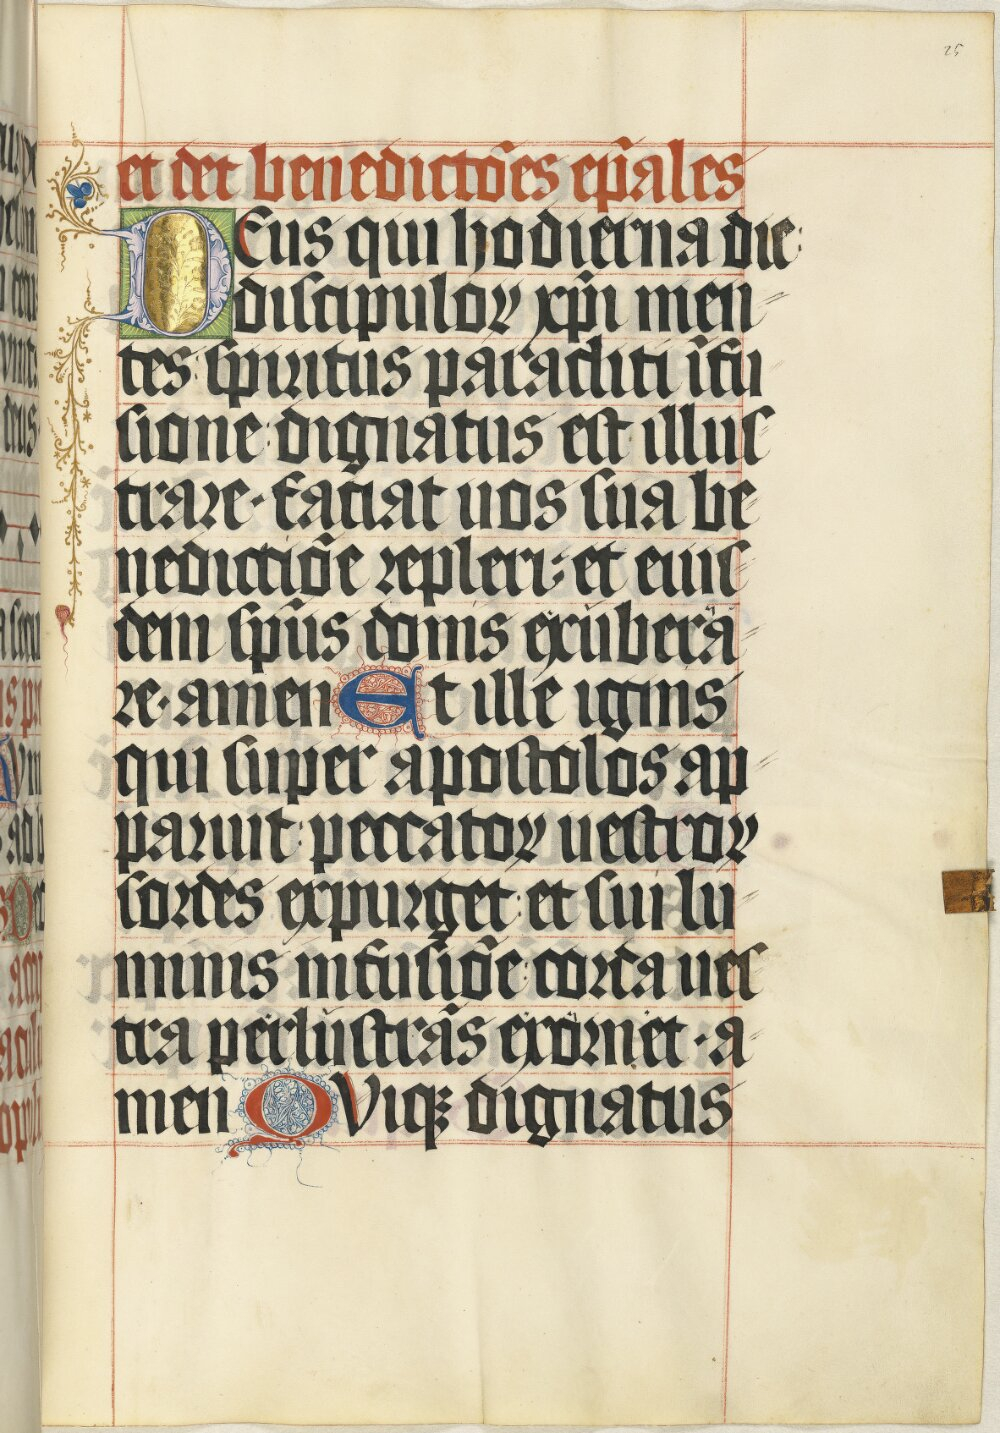 25
et det benedictōes ep̄ales
DEus qui hodierna die:
discipuloꝝ xp̄i men
tes spiritus paracliti īfu
sione dignatus est illuſ
trare. faciat uos sua be
nedictiōe repleri: et eiuſ
dem sp̄us donis exubera
re. amen Et ille ignis
qui super apostolos ap
paruit peccatoꝝ uestroꝝ
sordes expurget: et sui lu
minis infusiōe corda ueſ
tra perlustrās exornet. a
men QVicꝫ dignatus